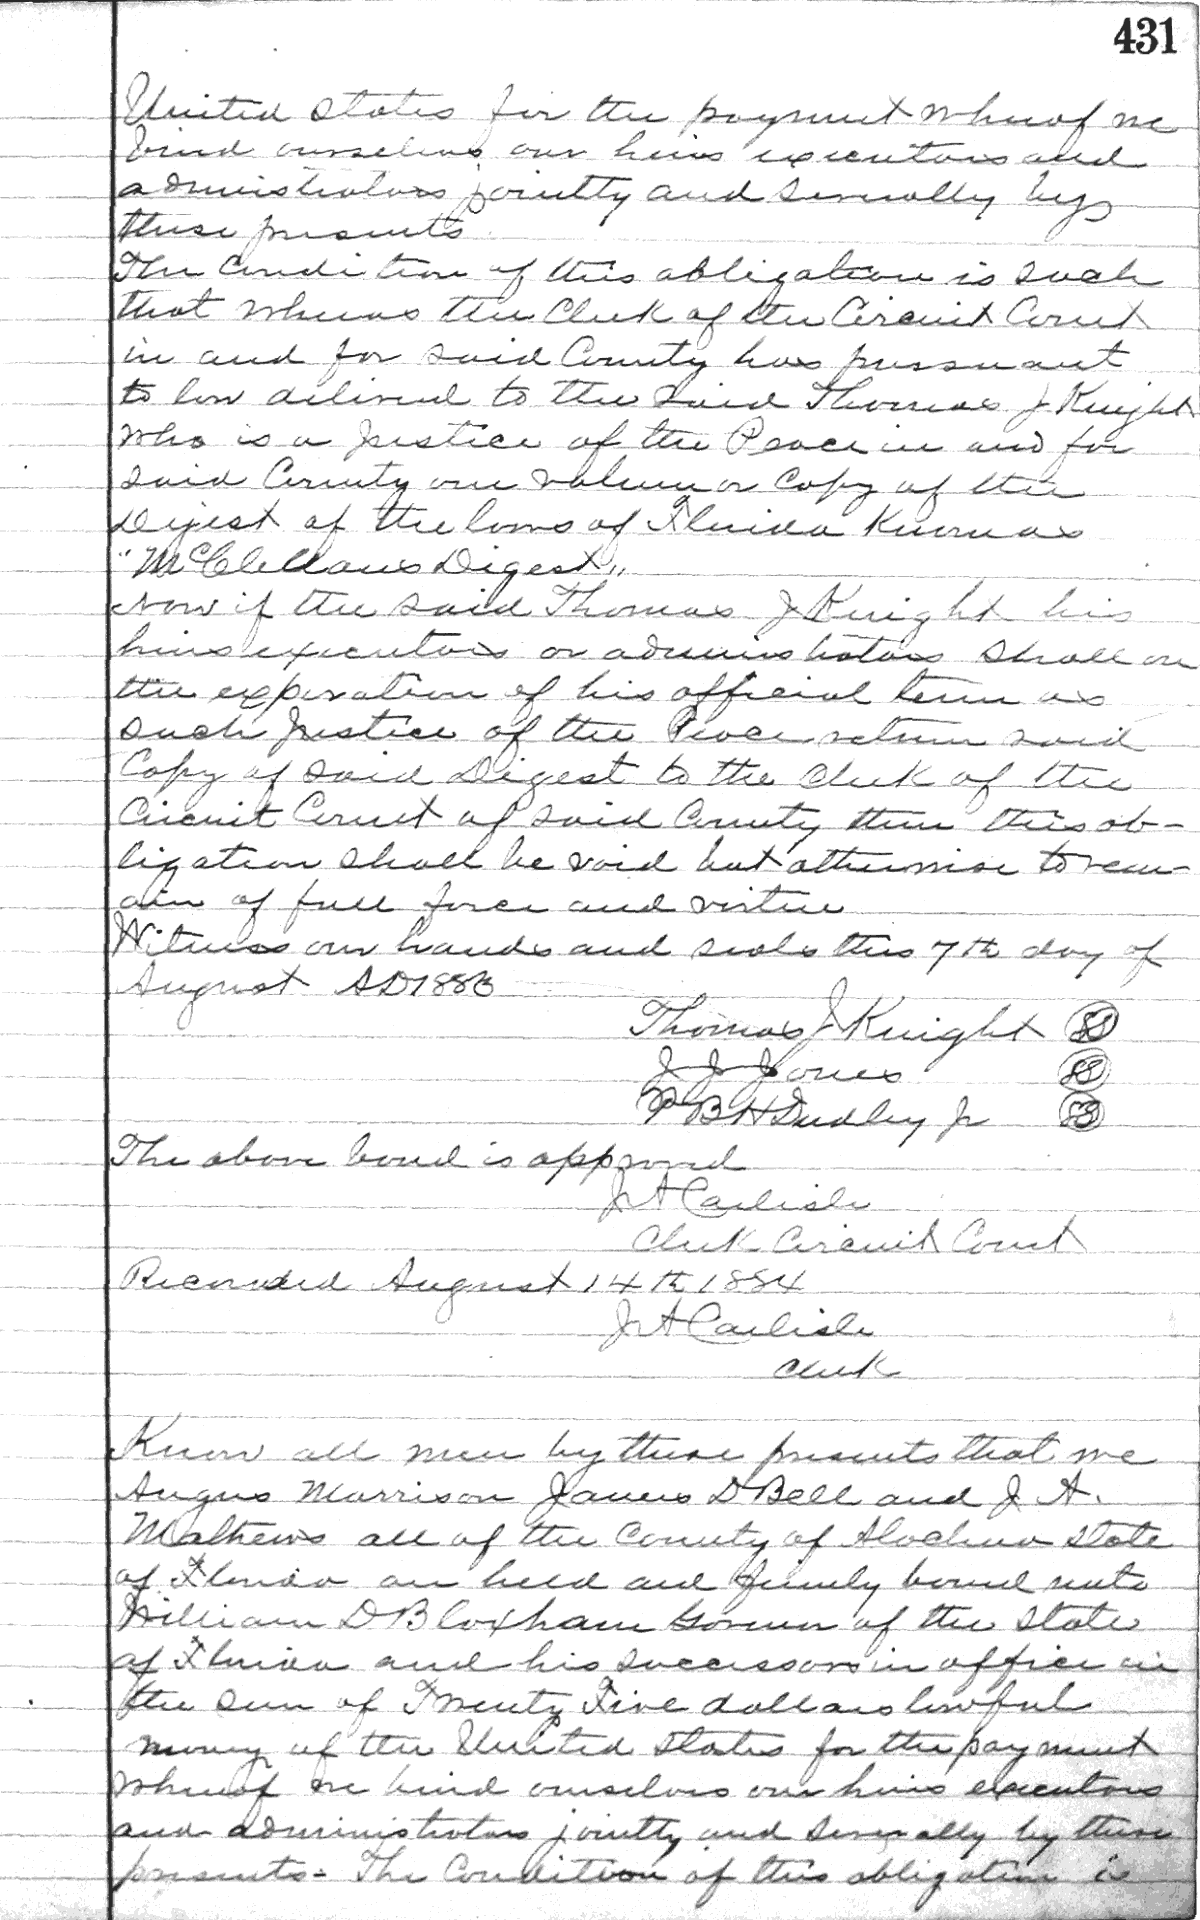 431
United States for the payment whereof we
bind ourselves our heirs executors and
administrators jointly and severally by
these presents
The Condition of this obligation is such
that whereas the Clerk of the Circuit Court
in and for said County has pursuant
to law delivered to the said Thomas J Knight
who is a Justice of the Peace in and for
said County one volume or Copy of the
Digest of the laws of Florida Known as
"McClellans Digest"
Now if the said Thomas J Knight his
heirs executors or administrators shall on
the expiration of his official term as
such Justice of the Peace return said
Copy of said Digest to the Clerk of the
Circuit Court of said County then this ob-
ligation shall be void but otherwise to rem-
ain of full force and virtue
Witness our hands and seals this 7th day of
August AD 1883
Thomas J Knight LS
J J Jones LS
P B H Dudley Jr LS
The above bond is approved
J A Carlisle
Clerk Circuit Court
Recorded August 14th 1884
J A Carlisle
Clerk
Know all men by these presents that we
Angus Morrison James D Bell and J A.
Mathews all of the County of Alachua State
of Florida are held and firmly bound unto
William D Bloxham Governor of the State
of Florida and his successors in office in
the sum of Twenty Five dollars lawful
money of the United States for the payment
whereof we bind ourselves our heirs executors
and administrators jointly and severally by these
presents - The Condition of this obligation is